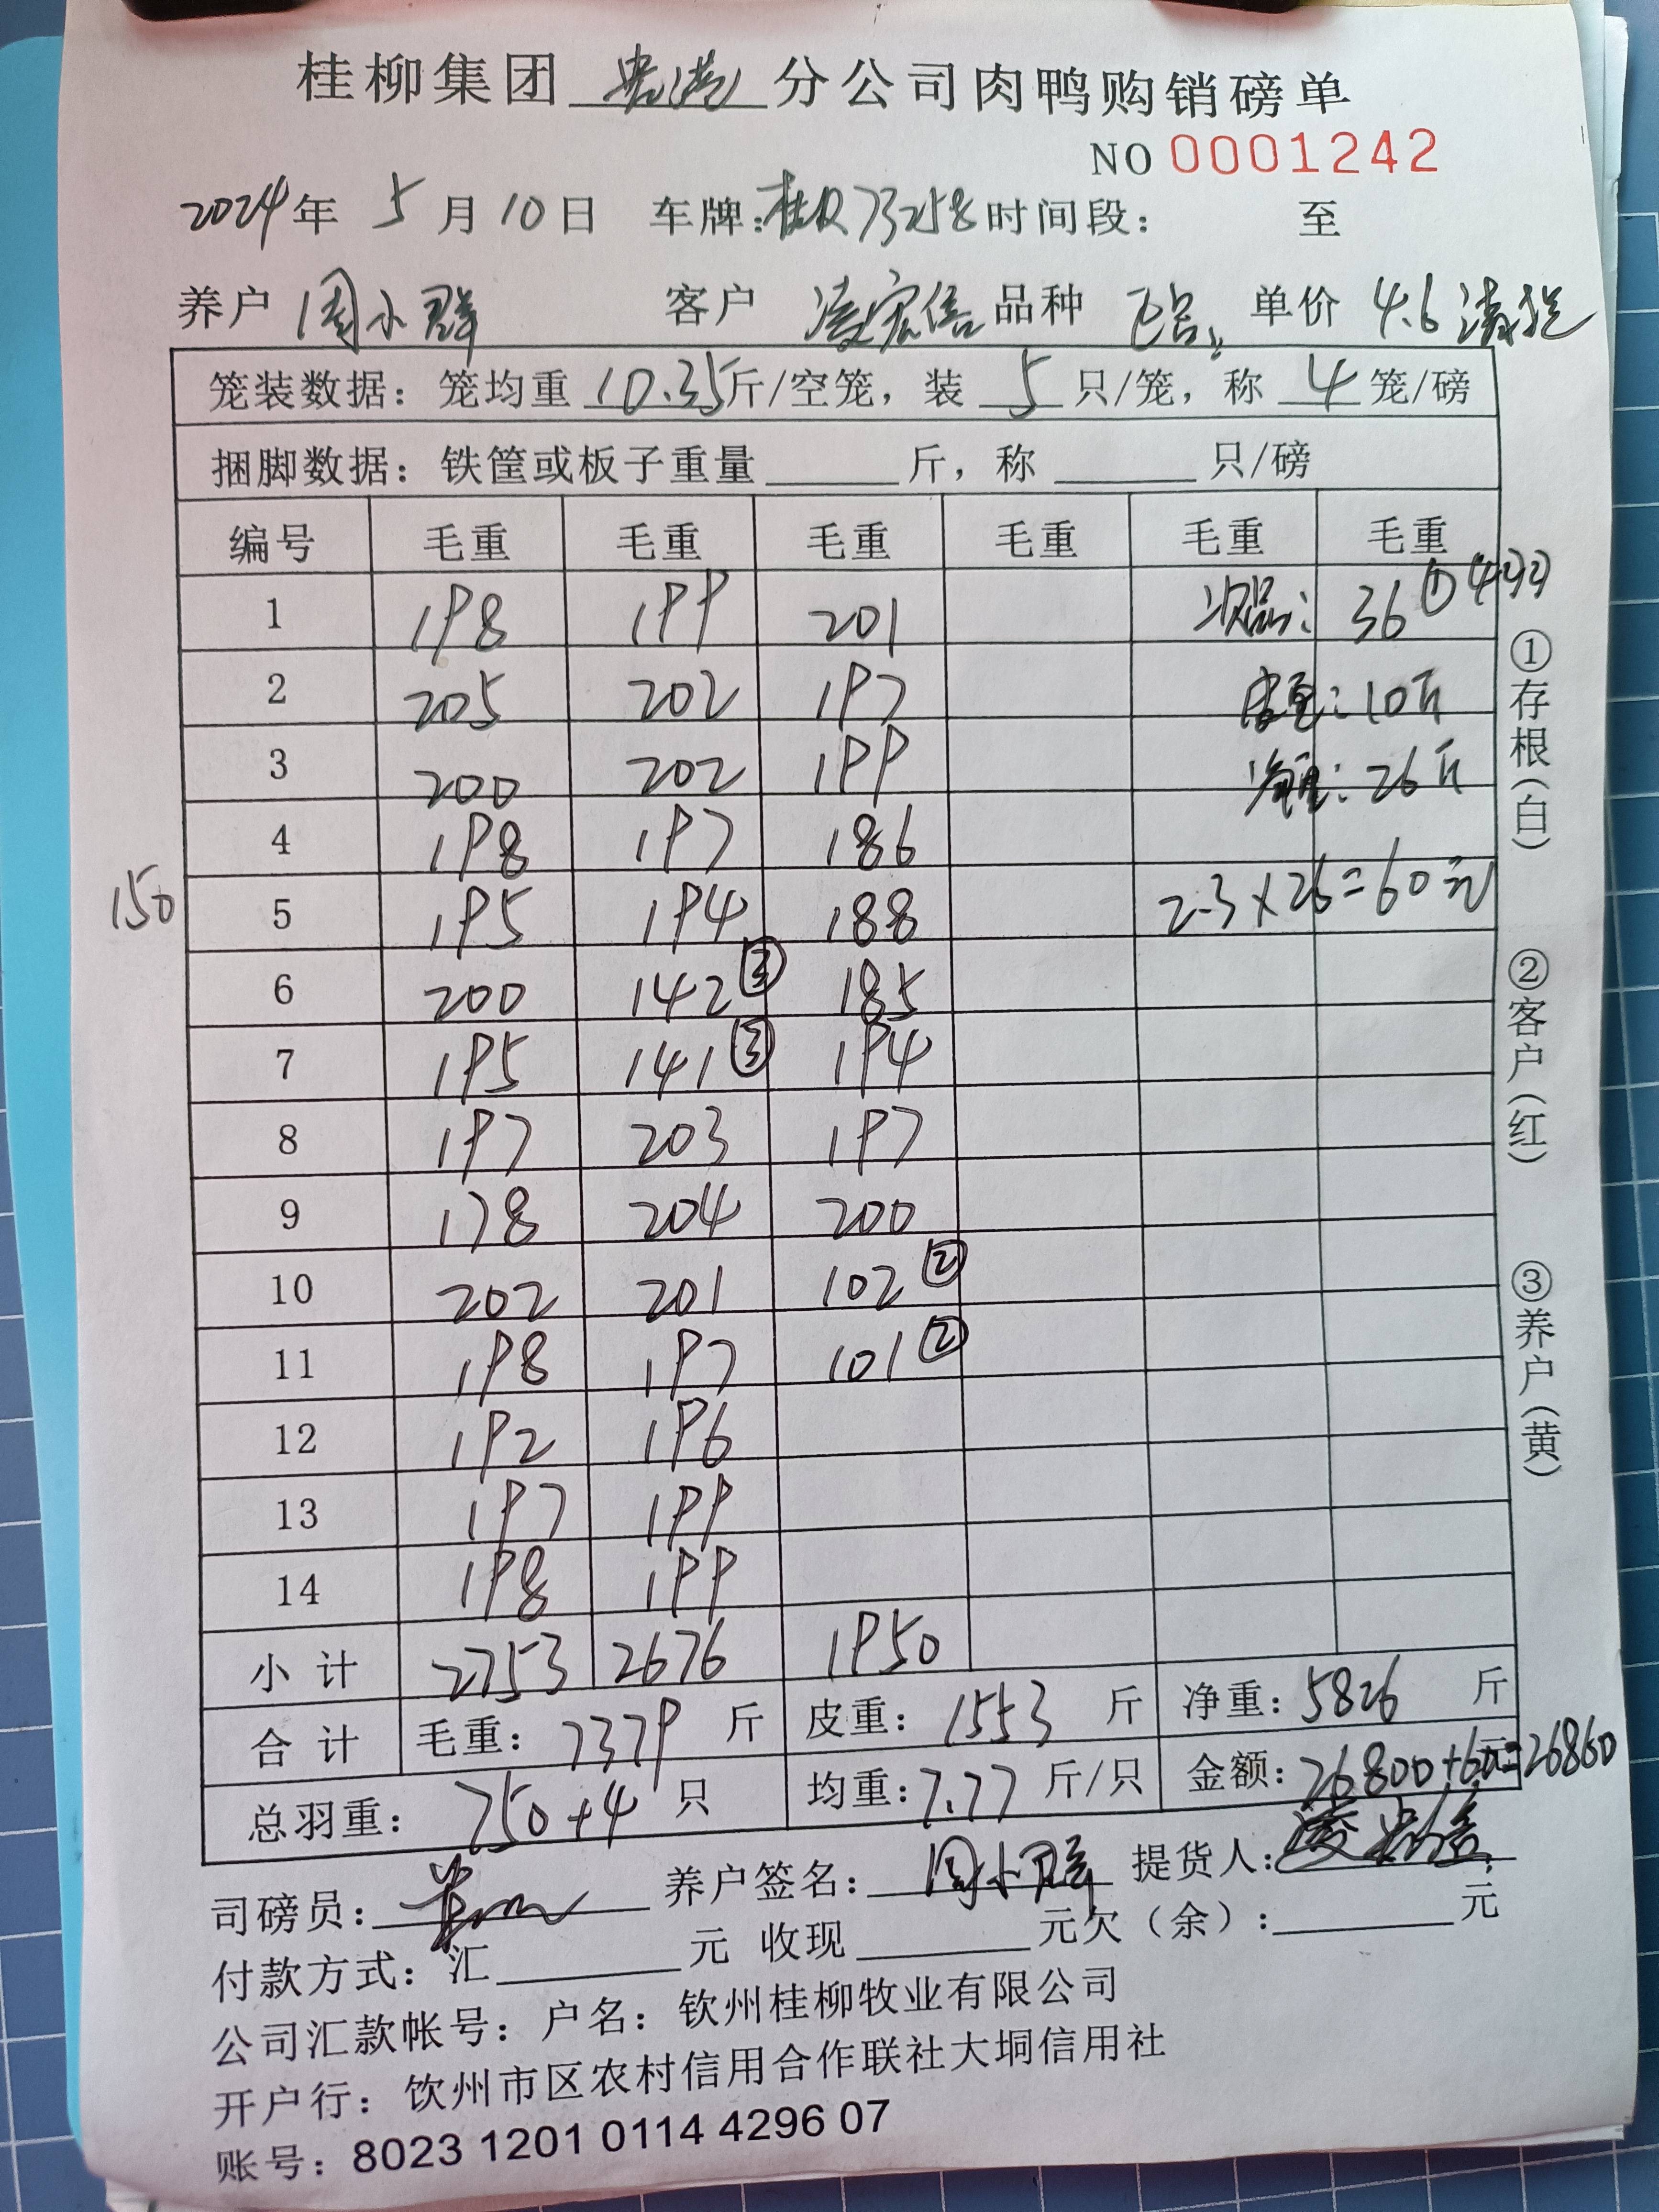 桂柳集团 贵港 分公司肉鸭购销磅单
NO 0001242
2024年 5 月 10 日 车牌：桂R73258 时间段： 至
养户 周小群 客户 凌宏信 品种 单价 4.6 清挖
笼装数据：笼均重 10.35 斤/空笼，装 5 只/笼，称 4 笼/磅
捆脚数据：铁筐或板子重量 斤，称 只/磅
编号 毛重 毛重 毛重 毛重 毛重 毛重
1 198 199 201 次品： 36① (4只)
2 205 202 197 皮重：10斤
3 200 202 199 净重：26斤
4 198 197 186
150 5 195 194 188 2.3×26=60元
6 200 142③ 185
7 195 141③ 194
8 197 203 197
9 178 204 200
10 202 201 102②
11 198 197 101②
12 192 196
13 197 199
14 198 199
小计 2753 2676 1950
合计 毛重：7379 斤 皮重：1553 斤 净重：5826 斤
总羽重：750+4 只 均重：7.77 斤/只 金额：26800+60元=26860
司磅员： 养户签名：周小群 提货人：
付款方式：汇 元 收现 元欠（余）： 元
公司汇款帐号：户名：钦州桂柳牧业有限公司
开户行：钦州市区农村信用合作联社大垌信用社
账号：8023 1201 0114 4296 07
①存根（白）
②客户（红）
③养户（黄）